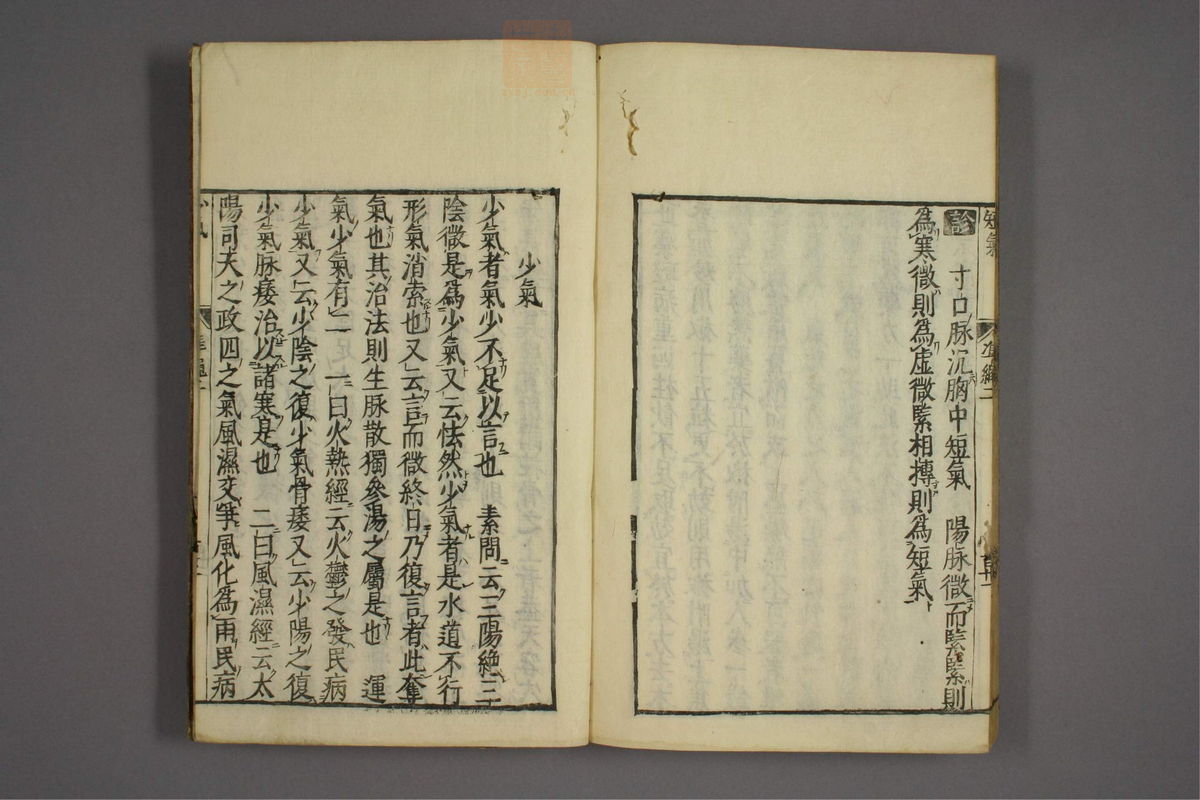 短氣
診 寸口脉沉胸中短氣 陽脉微而緊緊則
為寒微則為虛微緊相摶則為短氣
少氣
少氣者氣少不足以言也 素問云三陽絶三
陰微是為少氣又云怯然少氣者是水道不行
形氣消索也又云言而微終日乃復言者此奪
氣也其治法則生脉散獨參湯之屬是也 運
氣少氣有二 一曰火熱經云火鬱之發民病
少氣又云少陰之復少氣骨痿又云少陽之復
少氣脉痿治以諸寒是也 二曰風濕經云太
陽司天之政四之氣風濕交争風化為雨民病
少氣